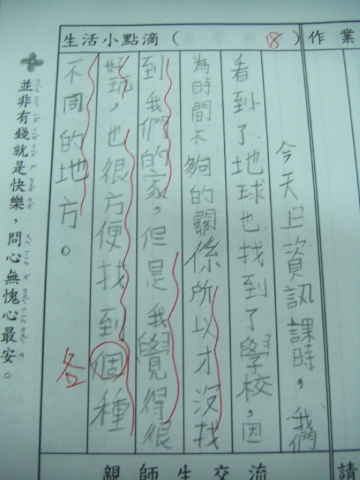 作業
生活小點滴（ 18 ）
今天上資訊課時，我們
看到了地球也找到了學校，因
為時間不夠的關係所以才沒找
到我們的家，但是我覺得很
好玩，也很方便找到個種
各
不同的地方。
並非有錢就是快樂，問心無愧心最安。
親師生交流
請